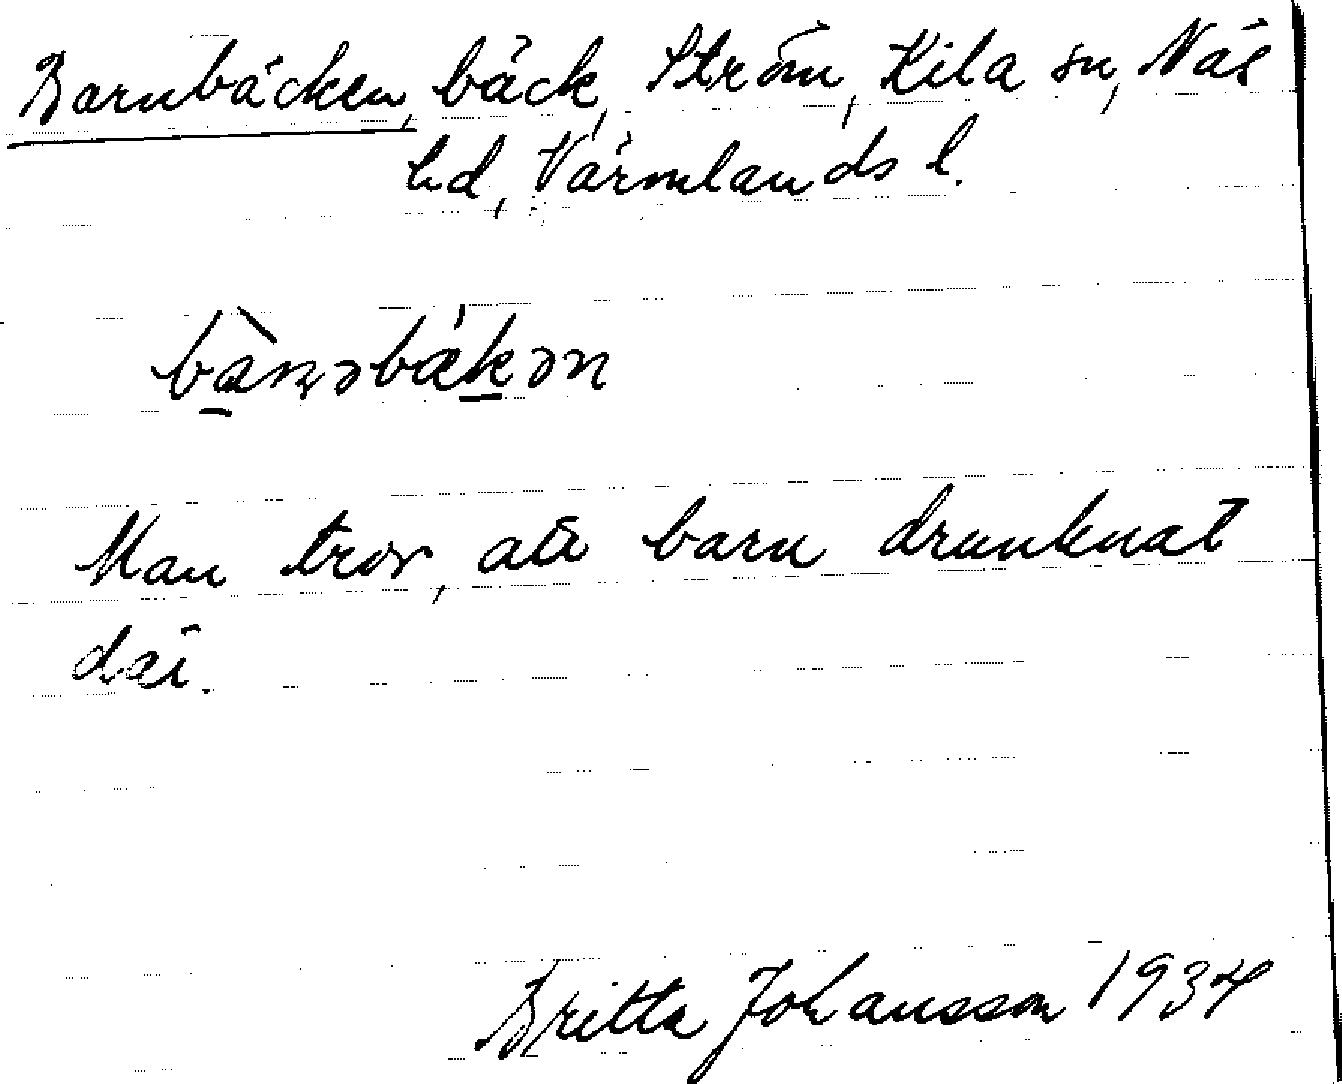 Barnbäcken, bäck, Ström, Kila sn, Näs
hd, Värmlands l.
bànəbækən
Man tror, att barn drunknat
däri.
Britta Johansson 1934